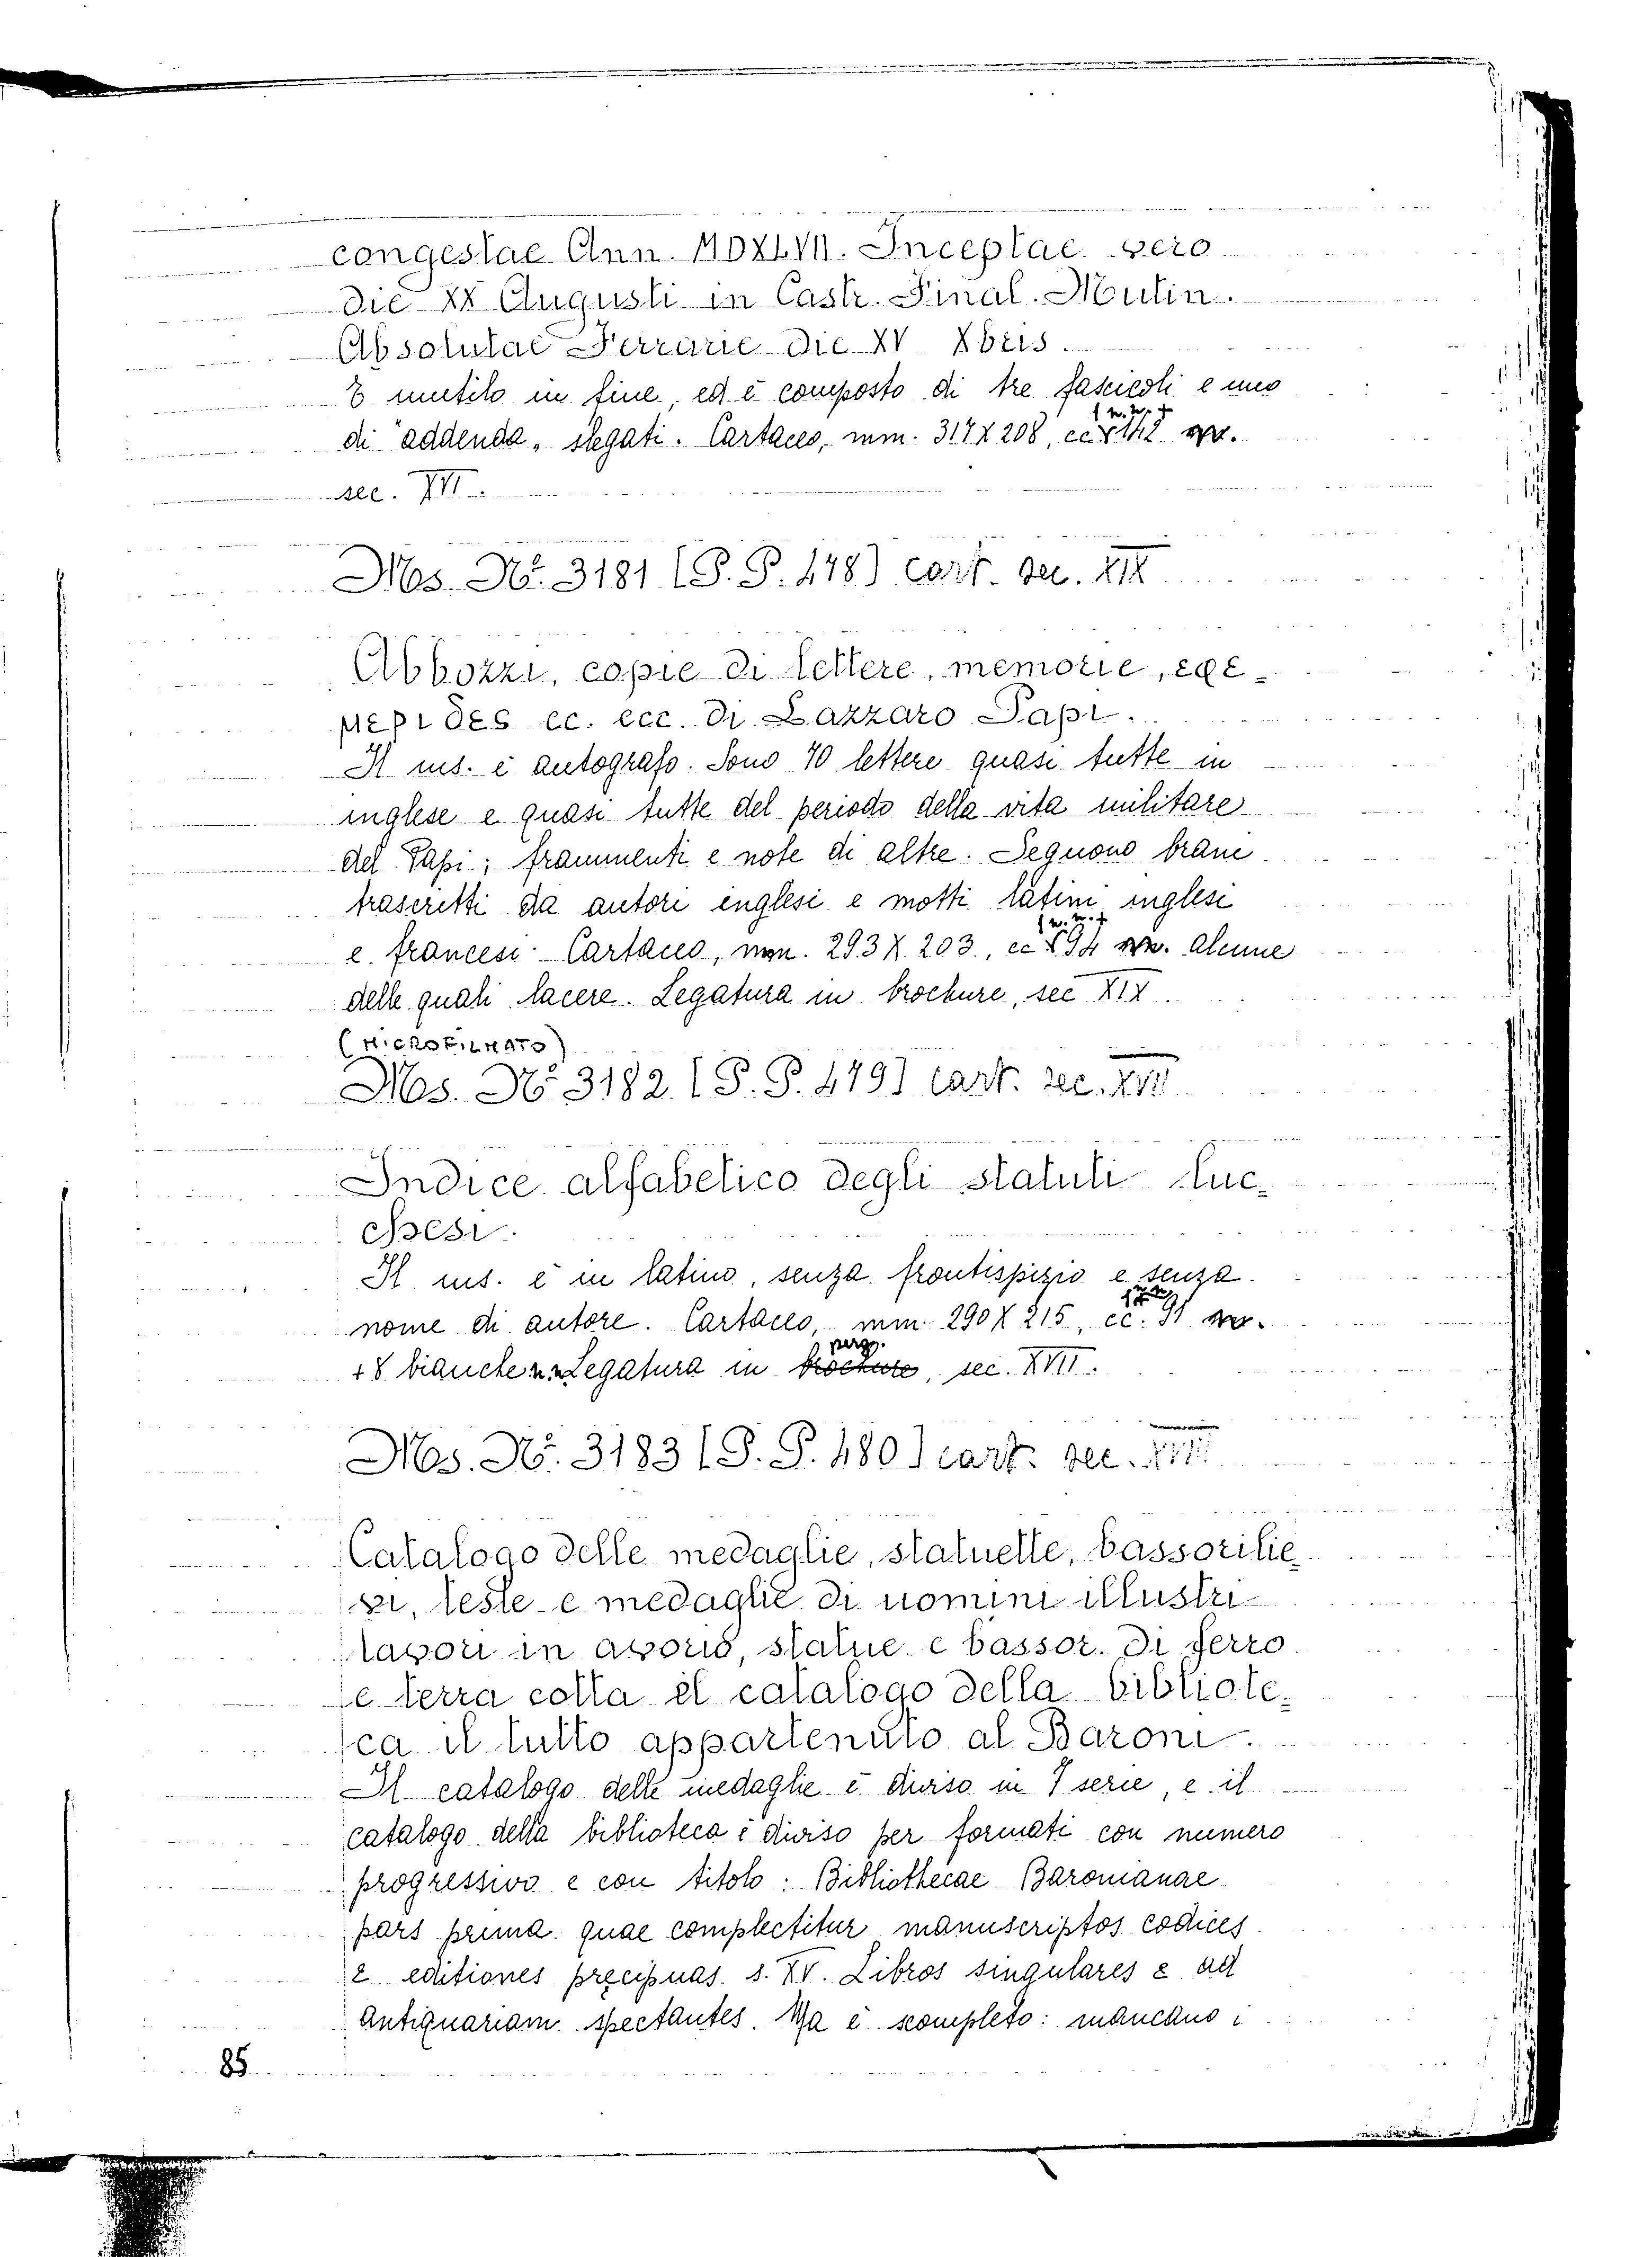 congestae Ann. MDXLVII. Inceptae vero
die XX Augusti in Castr. Final. Mutin.
Absolutae Ferrarie die XV Xbris.
È mutilo in fine, ed è composto di tre fascicoli e uno
di "addenda" slegati. Cartaceo, mm. 317 X 208, cc. 142
sec. XVI.
Ms. N.° 3181 (P. P. 478) cart. sec. XIX
Abbozzi, copie di lettere, memorie, efe-
meridi ec. ecc. di Lazzaro Papi.
Il ms. è autografo. Sono 70 lettere quasi tutte in
inglese e quasi tutte del periodo della vita militare
del Papi; frammenti e note di altre. Seguono brani
trascritti da autori inglesi e motti latini inglesi
e francesi. Cartaceo, mm. 293 X 203, cc 94 alcune
delle quali lacere. Legatura in brochure, sec XIX.
(MICROFILMATO)
Ms. N° 3182 (P. P. 479) cart. sec. XVII
Indice alfabetico degli statuti luc-
chesi.
Il ms. è in latino, senza frontispizio e senza
nome di autore. Cartaceo, mm. 290 X 215, cc. 91
perg.
+8 bianche n.n. Legatura in brochure, sec. XVII.
Ms. N°. 3183 (P. P. 480) cart. sec. XVIII
Catalogo delle medaglie, statuette, bassorilie-
vi, teste e medaglie di uomini illustri
lavori in avorio, statue e bassor. di ferro
e terra cotta el catalogo della bibliote-
ca il tutto appartenuto al Baroni.
Il catalogo delle medaglie è diviso in 7 serie, e il
catalogo della biblioteca è diviso per formati con numero
progressivo e con titolo: Bibliothecae Baronianae
pars prima quae complectitur manuscriptos codices
e editiones precipuas s. XV. Libros singulares e ad
Antiquariam spectantes. Ma è scompleto: mancano i
85